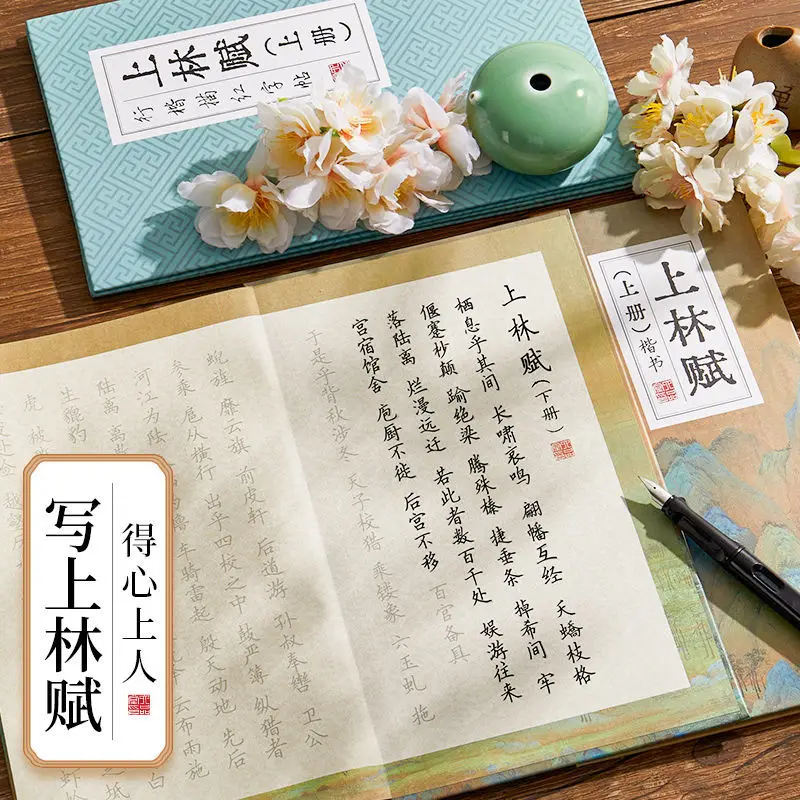 上林赋（上册）
行楷描红字帖
上林赋
（上册）楷书
上林赋（下册）
栖息乎其间 长啸哀鸣 翩幡互经 夭蟜枝格
偃蹇杪颠 踰绝梁 腾殊榛 捷垂条 掉希间 牢
落陆离 烂漫远迁 若此者数百千处 娱游往来
宫宿馆舍 庖厨不徙 后宫不移 百官备具
于是乎背秋涉冬 天子校猎 乘镂象 六玉虬 拖
蜺旌 靡云旗 前皮轩 后道游 孙叔奉辔 卫公
参乘 扈从横行 出乎四校之中 鼓严簿 纵猎者
河江为陆 橹 车骑雷起 殷天动地 先后
陆离 离 云布雨施
生貔豹
虎 被
得心上人
写上林赋